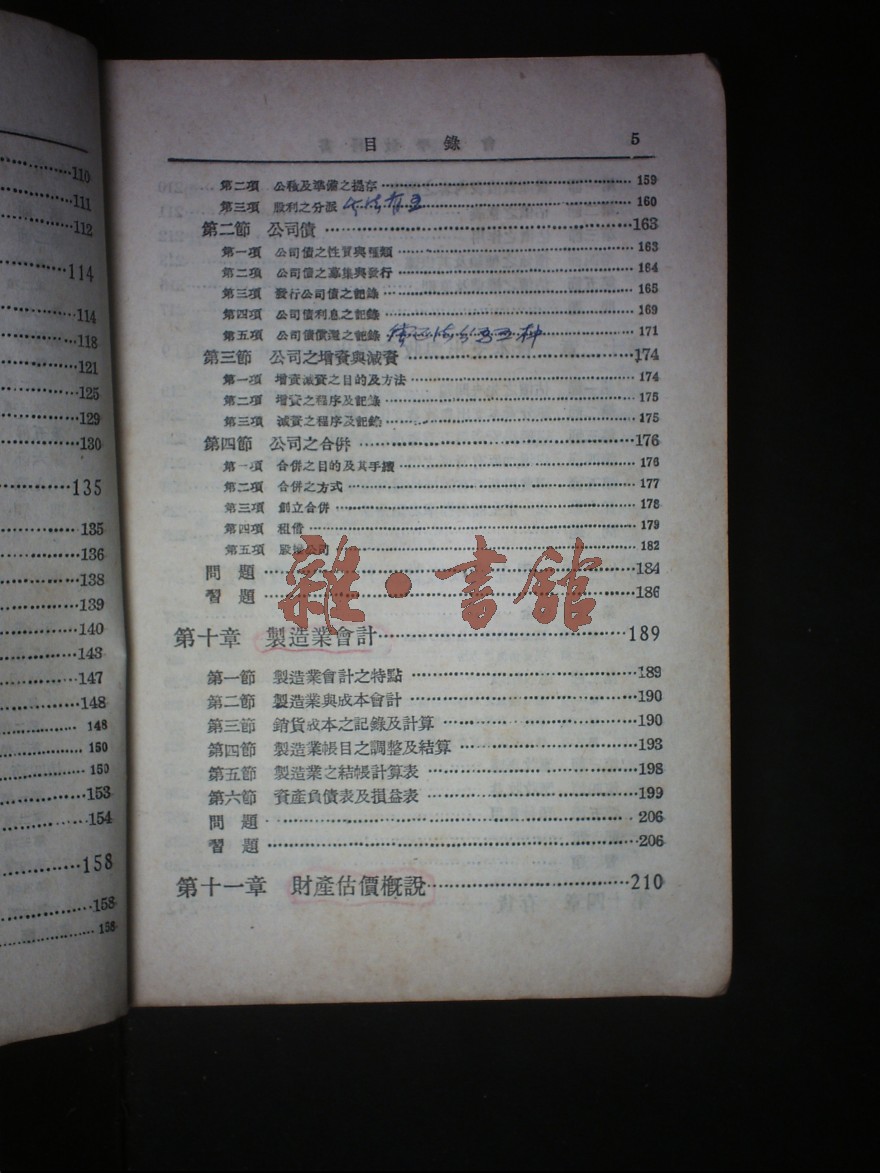 110
111
112
114
114
118
121
125
129
130
135
135
136
138
139
140
143
147
148
148
150
150
153
154
158
158
158
目錄 5
第二項 公積及準備之提存 159
第三項 股利之分派 160
第二節 公司債 163
第一項 公司債之性質與種類 163
第二項 公司債之募集與發行 164
第三項 發行公司債之記錄 165
第四項 公司債利息之記錄 169
第五項 公司債償還之記錄 171
第三節 公司之增資與減資 174
第一項 增資減資之目的及方法 174
第二項 增資之程序及記錄 175
第三項 減資之程序及記錄 175
第四節 公司之合併 176
第一項 合併之目的及其手續 176
第二項 合併之方式 177
第三項 創立合併 178
第四項 租借 179
第五項 股權公司 182
問題 184
習題 186
雜·書館
第十章 製造業會計 189
第一節 製造業會計之特點 189
第二節 製造業與成本會計 190
第三節 銷貨成本之記錄及計算 190
第四節 製造業帳目之調整及結算 193
第五節 製造業之結帳計算表 198
第六節 資產負債表及損益表 199
問題 206
習題 206
第十一章 財產估價概說 210